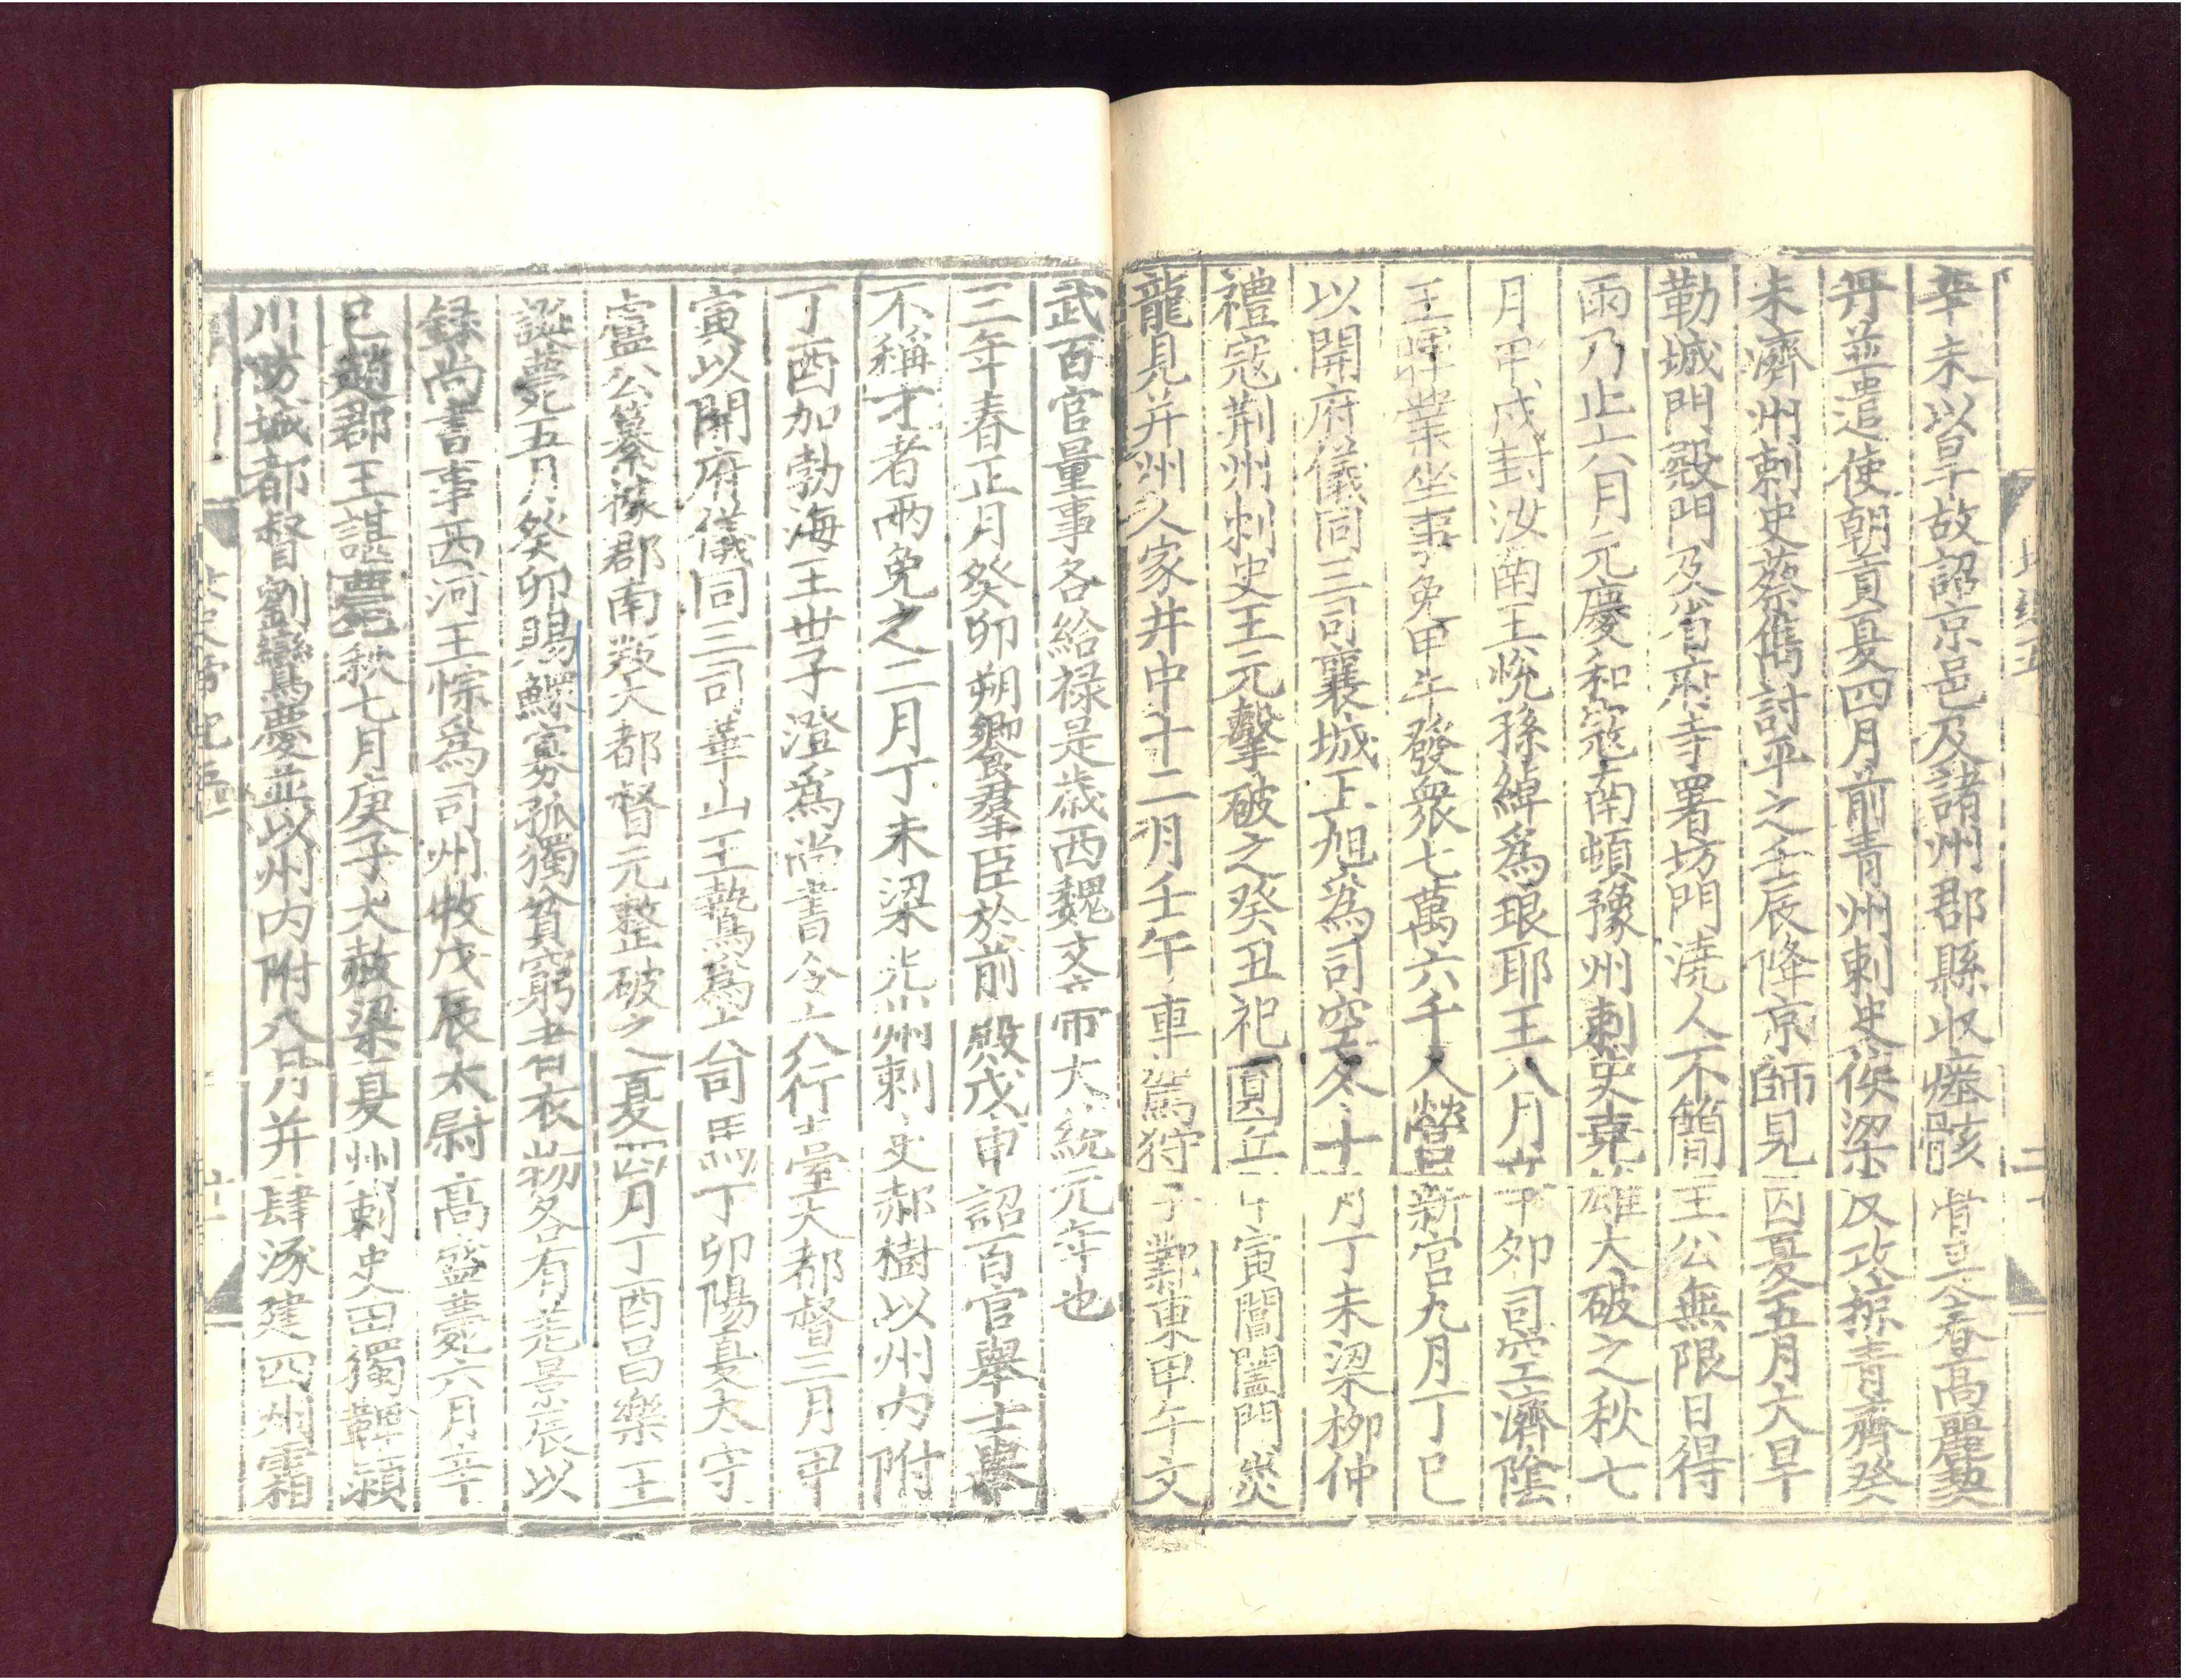 辛未以旱故詔京邑及諸州郡縣收瘞骸骨是春高麗契
丹並遣使朝貢夏四月前青州刺史侯梁反攻掠青齊癸
未濟州刺史蔡儁討平之壬辰降京師見囚夏五月大旱
勒城門殿門及省府寺署坊門澆人不簡王公無限日得
雨乃止六月元慶和寇南頓豫州刺史堯雄大破之秋七
月甲戌封汝南王悅孫綽為琅耶王八月辛卯司空濟陰
王暉業坐事免甲午發衆七萬六千人營新宮九月丁巳
以開府儀同三司襄城王旭為司空冬十一月丁未梁柳仲
禮寇荆州刺史王元擊破之癸丑祀圓丘甲寅閶闔門災
龍見并州人家井中十二月壬午車駕狩于鄴東甲午文
武百官量事各給禄是歳西魏文帝大統元年也
三年春正月癸卯朔饗羣臣於前殿戊申詔百官舉士舉
不稱才者兩免之二月丁未梁光州刺史郝樹以州内附
丁酉加勃海王世子澄為尚書令大行臺大都督三月甲
寅以開府儀同三司華山王鷙為大司馬丁卯陽夏太守
盧公纂據郡南叛大都督元整破之夏四月丁酉昌樂王
誕薨五月癸卯賜鰥寡孤獨貧窮者衣物各有差景辰以
録尚書事西河王悰為司州牧戊辰太尉高盛薨六月辛
巳趙郡王諶薨秋七月庚子大赦梁夏州刺史田獨鞞潁
川防城都督劉鸞慶並以州内附八月并肆涿建四州霜